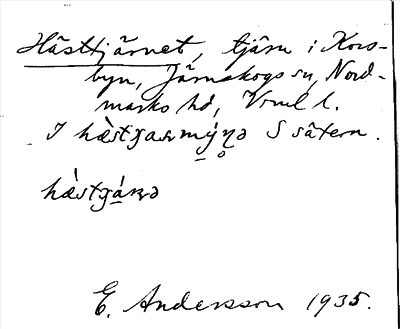 Hästtjärnet, tjärn i Kors-
byn, Järnskogs sn, Nord-
marks hd, Vrml l.
I hæ̀stꞩaɳmýn̥ə S sätern.
hæ̀stꞩáɳə
E. Andersson 1935.